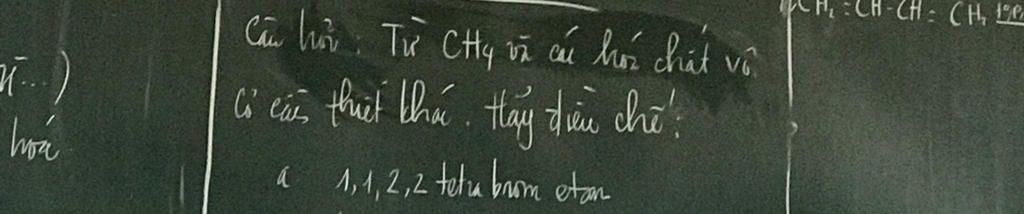 CH₂=CH-CH=CH₂
Câu hỏi: Từ CH4 và các hoá chất vô
ü...)
cơ cần thiết khác. Hãy điều chế:
hoá
a 1,1,2,2 tetra brom etan